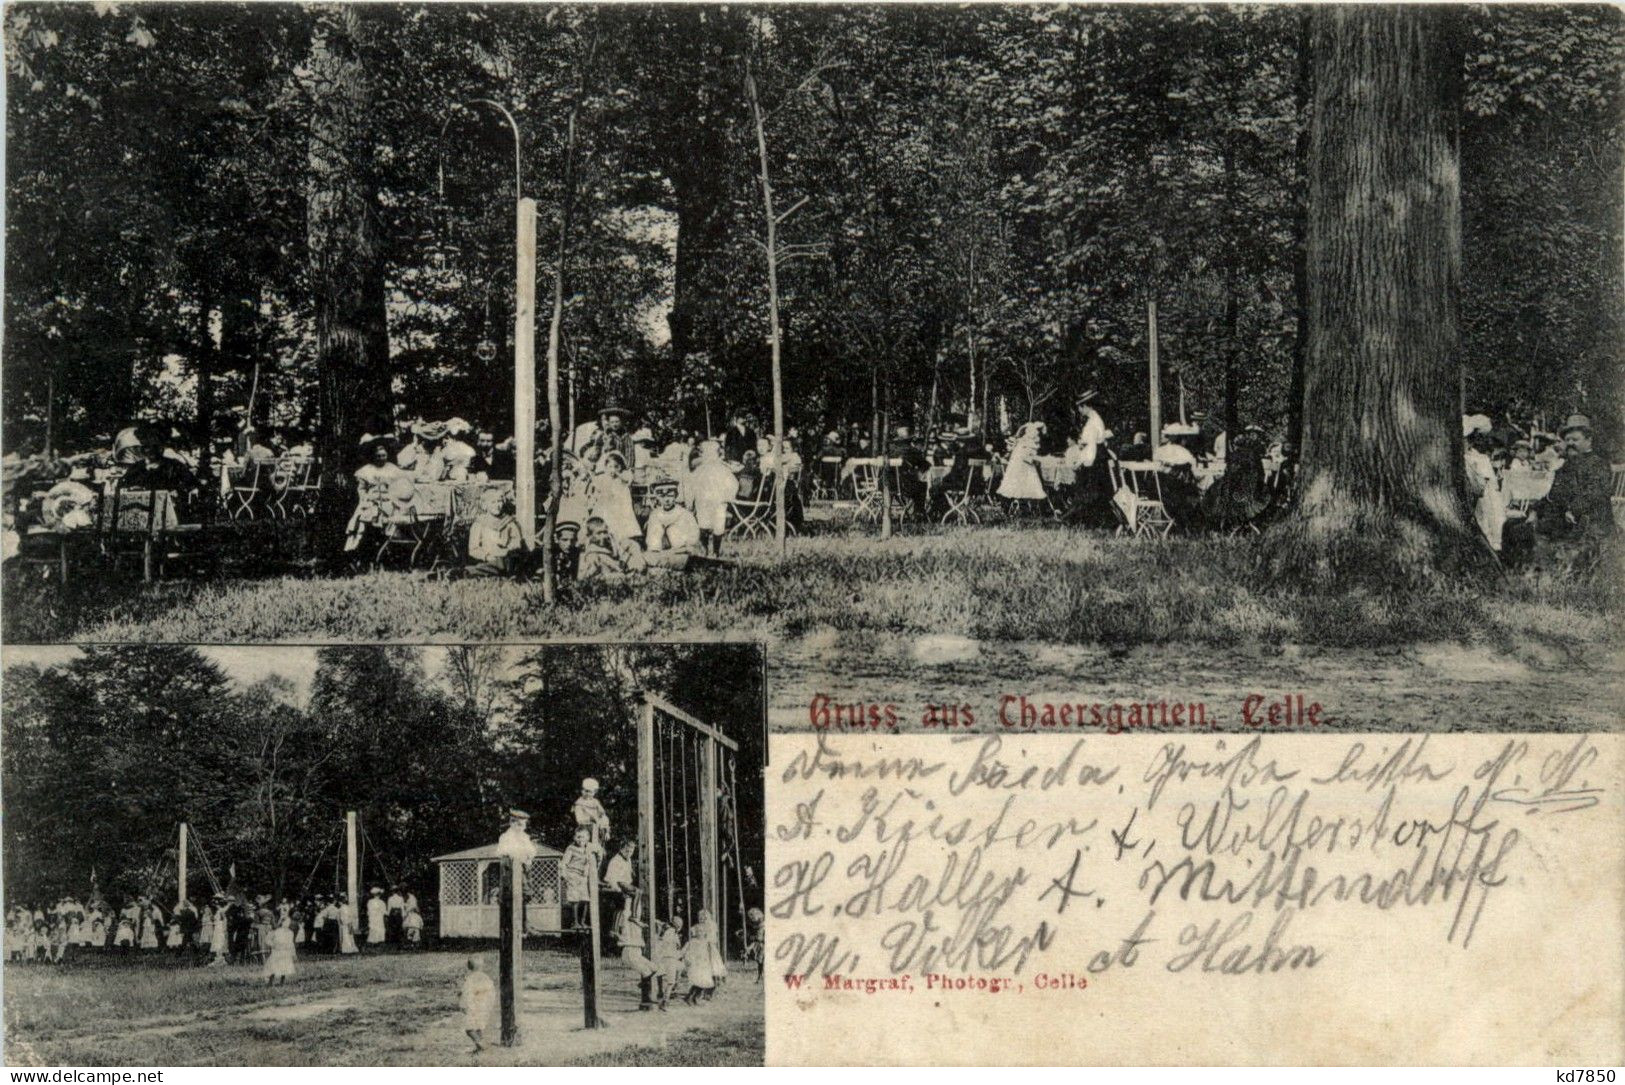 Gruss aus Thaersgarten, Celle.
Deine Frieda, Grüße bitte N. N.
A. Küster. A. Wolterstorff
H. Haller A. Mittendorff
M. Volker A Hahn
W. Margraf, Photogr., Celle
kd7850